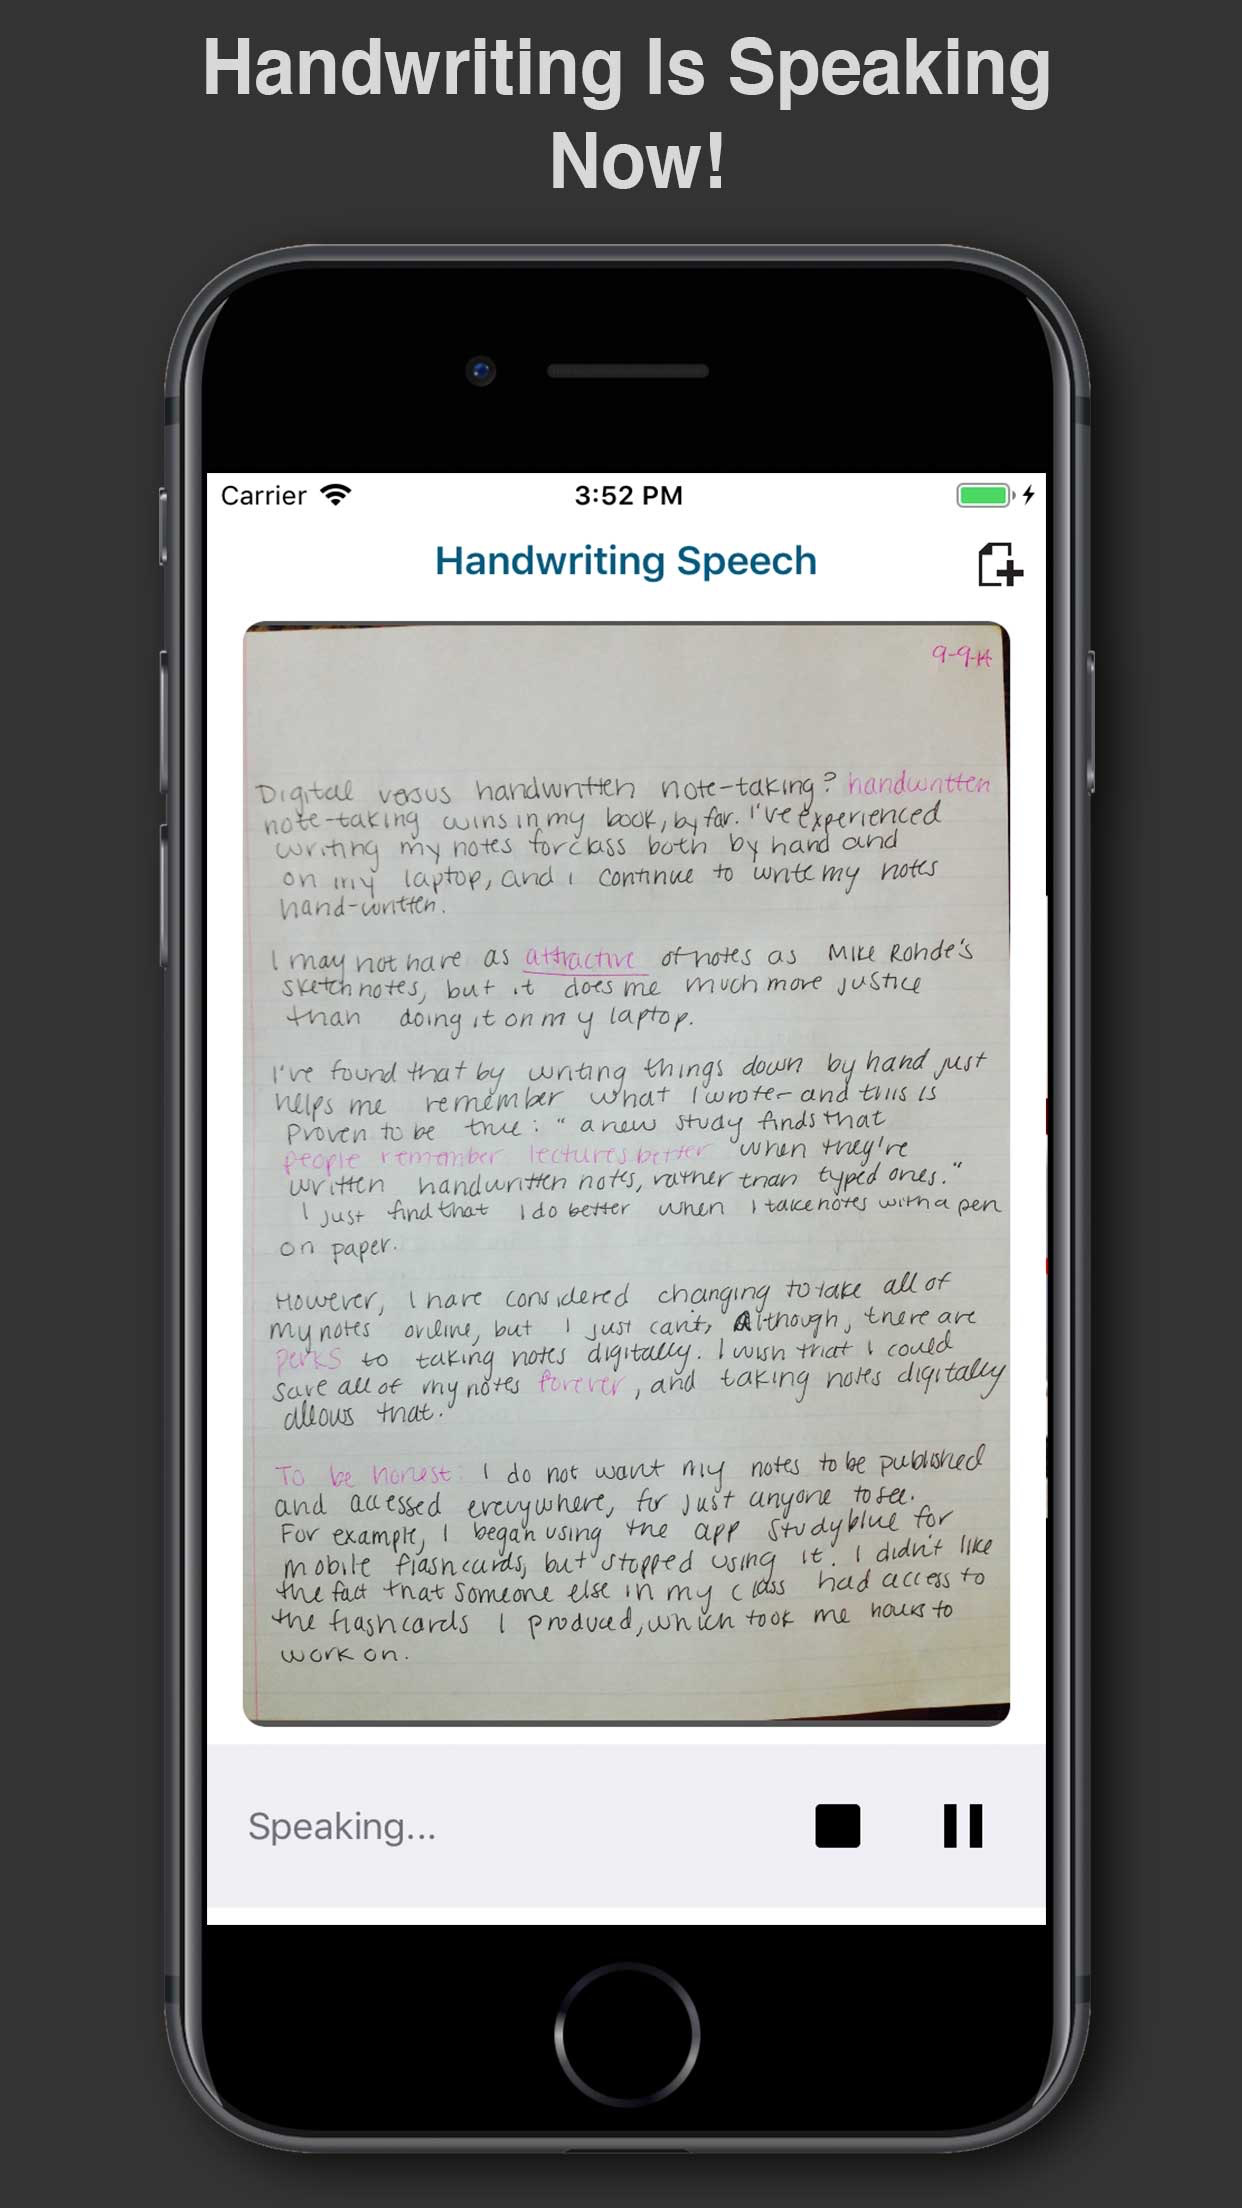 Handwriting Is Speaking
Now!
Carrier
3:52 PM
Handwriting Speech
9-9-14
Digital versus handwritten note-taking? handwritten
note-taking wins in my book, by far. I've experienced
writing my notes for class both by hand and
on my laptop, and i continue to write my notes
hand-written.
I may not have as attractive of notes as Mike Rohde's
sketchnotes, but it does me much more justice
than doing it on my laptop.
I've found that by writing things down by hand just
helps me remember what I wrote- and this is
proven to be true: "a new study finds that
people remember lectures better when they're
written handwritten notes, rather than typed ones."
I just find that I do better when I take notes with a pen
on paper.
However, I have considered changing to take all of
my notes online, but I just can't, Although, there are
perks to taking notes digitally. I wish that I could
save all of my notes forever, and taking notes digitally
allows that.
To be honest: I do not want my notes to be published
and accessed everywhere, for just anyone to see.
For example, I began using the app Studyblue for
mobile flashcards, but stopped using it. I didn't like
the fact that someone else in my class had access to
the flashcards I produced, which took me hours to
work on.
Speaking...